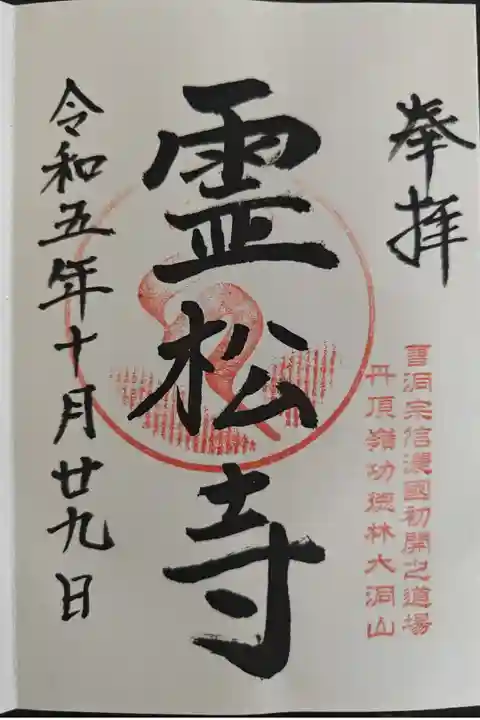 奉拝
曹洞宗信濃國初開之道場
丹頂嶺功徳林大洞山
霊松寺
令和五年十月廿九日